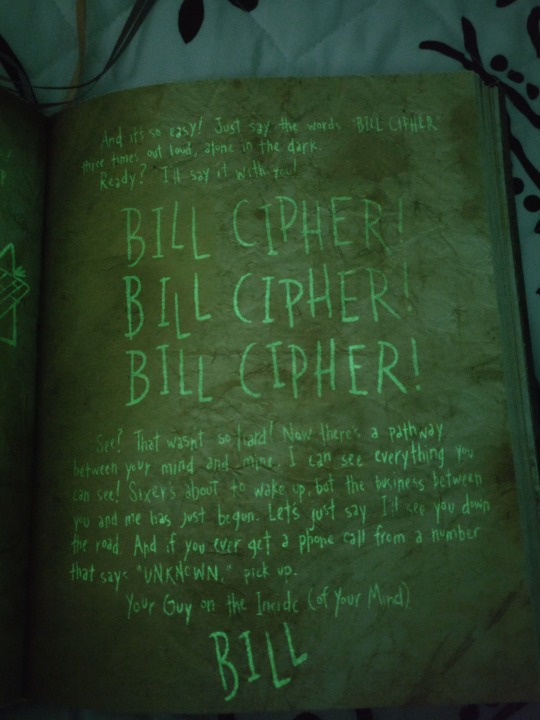 And it's so easy! Just say the words "BILL CIPHER"
three times out loud, alone in the dark.
Ready? I'll say it with you!
BILL CIPHER!
BILL CIPHER!
BILL CIPHER!
See? That wasn't so hard! Now there's a pathway
between your mind and mine. I can see everything you
can see! Sixer's about to wake up, but the business between
you and me has just begun. Let's just say I'll see you down
the road. And if you ever get a phone call from a number
that says "UNKNOWN," pick up.
Your Guy on the Inside (of Your Mind)
BILL